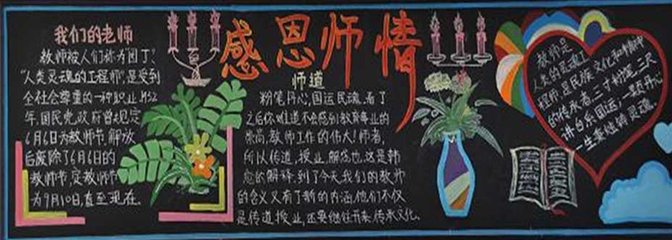 感恩师情
我们的老师
教师被人们称为园丁、
"人类灵魂的工程师",是受到
全社会尊重的一种职业。1932
年,国民党政府曾规定
6月6日为教师节,解放
后废除了6月6日的
教师节,定教师节
为9月10日,直至现在。
师道
粉笔丹心,国运民魂,看了
之后,你难道不会感到教育事业的
崇高,教师工作的伟大!师者,
所以传道,授业,解惑也,这是韩
愈的解释,到了今天,我们的教师
的含义又有了新的内涵,他们不仅
是传道,授业,还要继往开来,传承文化。
教师是
人类的灵魂工
程师,是民族文化和精神
的传承者,三寸粉笔,三尺
讲台系国运;一颗丹心,
一生秉烛铸民魂。